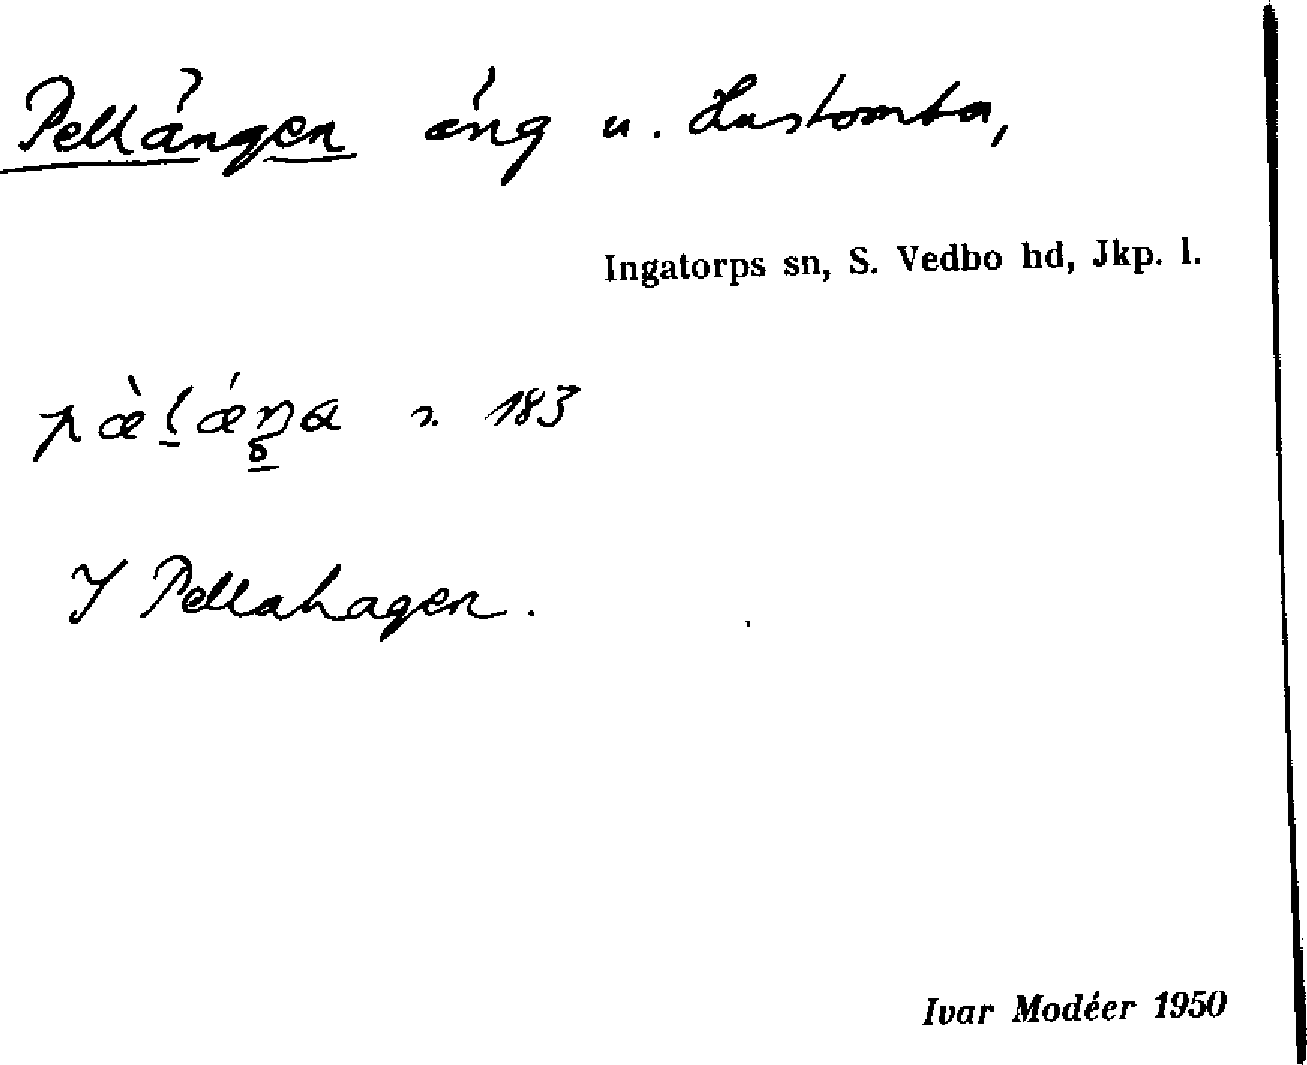 Pellängen äng u. Lustomta,
Ingatorps sn, S. Vedbo hd, Jkp. l.
pæ̀lǽŋa s. 183
I Pellahagen.
Ivar Modéer 1950